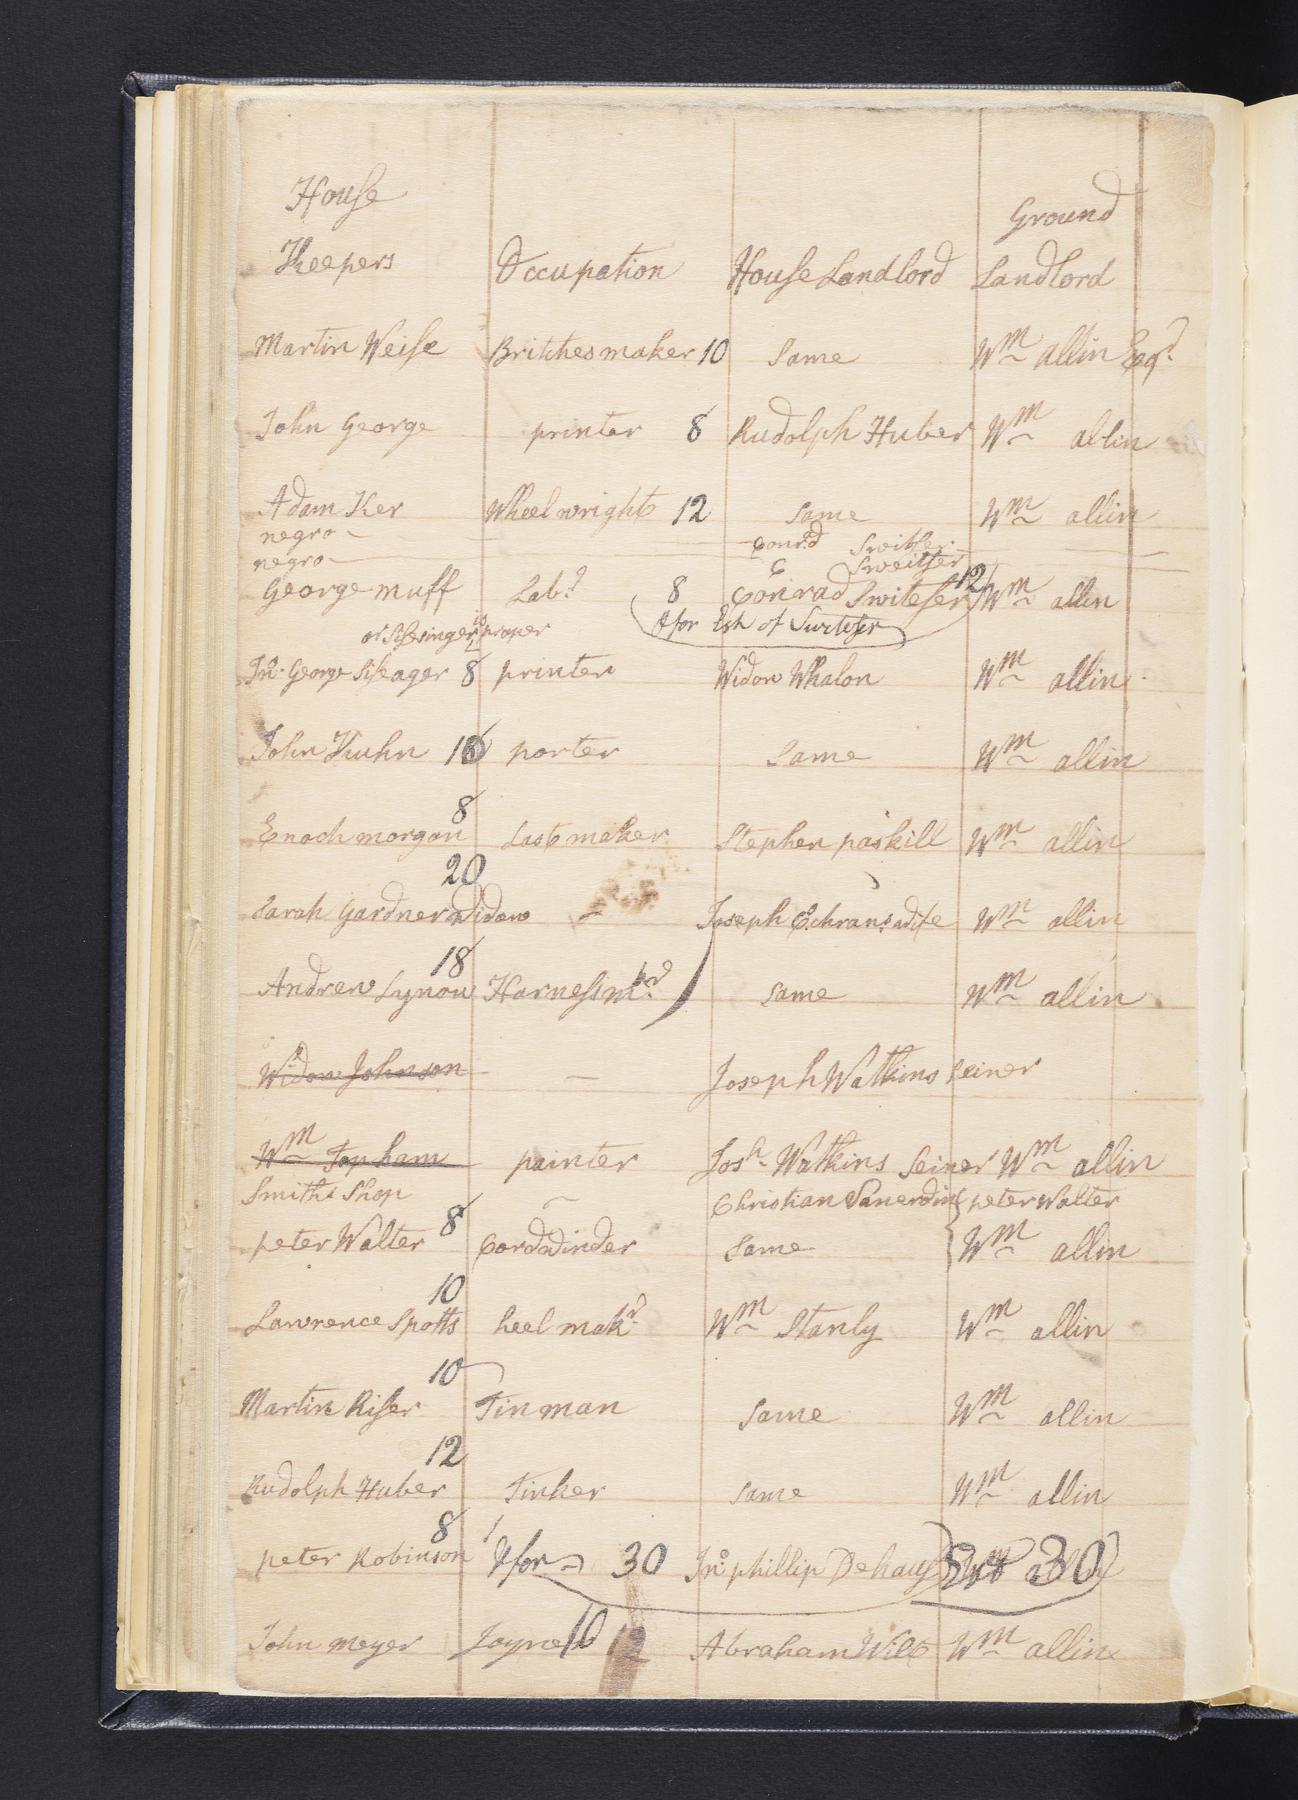 House
Keepers Occupation House Landlord Ground Landlord
Martin Weise Britches maker 10 Same Wm allin Esqr.
John George printer 8 Rudolph Huber Wm allin
Adam Ker Wheel wright 12 Same Wm allin
negro – Conrd Switser
negro – C Sweitser
George muff Labr. 8 Conrad Switeser 12 Wm allin
or Sissinger is proper for Est of
Jno. George Siseager 8 printer Widow Whalon Wm allin
John Kuhn porter Same Wm allin
8
Enoch morgan Last maker Stephen paskill Wm allin
20
Sarah Gardner Widow – Joseph Wm allin
18
Andrew Lynou Harness mkr. Same Wm allin
Widow Johnson – Joseph Watkins Seiner
Wm Topham painter Josh. Watkins Seiner Wm allin
Smiths Shop – Christian peter Walter
peter Walter 8 Cordwinder Same Wm allin
10
Lawrence Spotts heel makr. Wm Stanly Wm allin
10
Martin Riser Tinman Same Wm allin
12
Rudolph Huber Tinker Same Wm allin
8
peter Robinson for 30 Jno. phillip Dehauf 30
John meyer Joyner 12 Abraham Wilt Wm allin